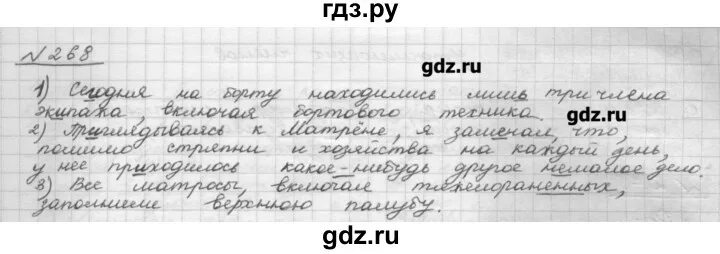 гдз.ру
№268
gdz.ru
1) Сегодня на борту находились лишь три члена
экипажа, включая бортового техника.
gdz.ru
2) Приглядываясь к Матрёне, я замечал, что,
помимо стряпни и хозяйства на каждый день,
у нее приходилось какое-нибудь другое немалое дело.
3) Все матросы, включая тяжелораненных,
gdz.ru
заполнили верхнюю палубу.
gdz.ru